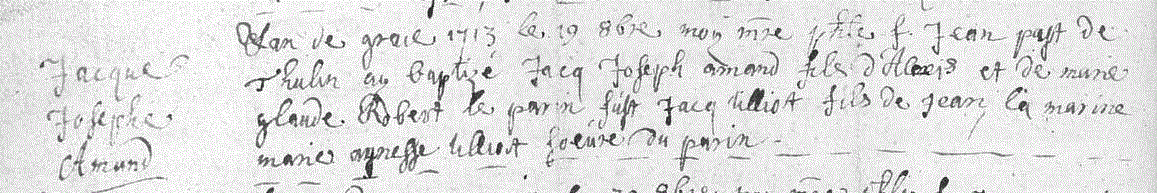 Jacque
Josephe
Amand
Lan de grace 1713 le 19 8bre moy mre phle f. Jean past de
Thulin ay baptizé Jacq Joseph amand fils d'Alexis et de marie
glaude Robert le parin fust Jacq Ulliot fils de Jean, la marine
marie agnesse Ulliot soeure du parin